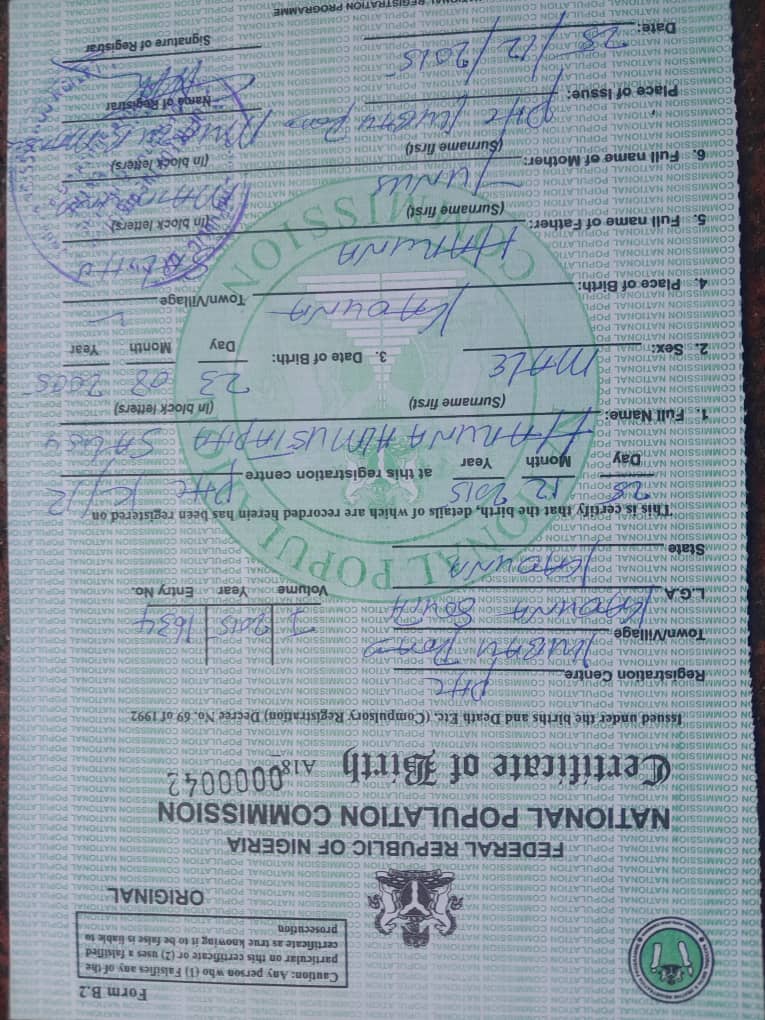 Form B.2
Caution: Any person who (1) Falsifies any of the
particular on this certificate or (2) uses a falsified
certificate as true knowing it to be false is liable to
prosecution
ORIGINAL
FEDERAL REPUBLIC OF NIGERIA
NATIONAL POPULATION COMMISSION
Certificate of Birth A18 0000042
Issued under the births and Death Etc. (Compulsory Registration) Decree No. 69 of 1992
Registration Centre PHC
Town/Village KUBAU ROAD
L.G.A. KADUNA SOUTH
State KADUNA
Volume Year Entry No.
I 2015 1634
This is certify that the birth, details of which are recorded herein has been registered on
28 12 2015 at this registration centre PHC K/12
Day Month Year
1. Full Name: HARUNA MUSTAPHA
(Surname first) (In block letters)
2. Sex: MALE 3. Date of Birth: 23 08 2005
Day Month Year
4. Place of Birth: KADUNA Town/Village
5. Full name of Father: HARUNA
(Surname first) (In block letters)
6. Full name of Mother: YUNUS
(Surname first) (In block letters)
Place of Issue: PHC KUBAU ROAD
Name of Registrar
Date: 28/12/2015
Signature of Registrar
REGISTRATION PROGRAMME